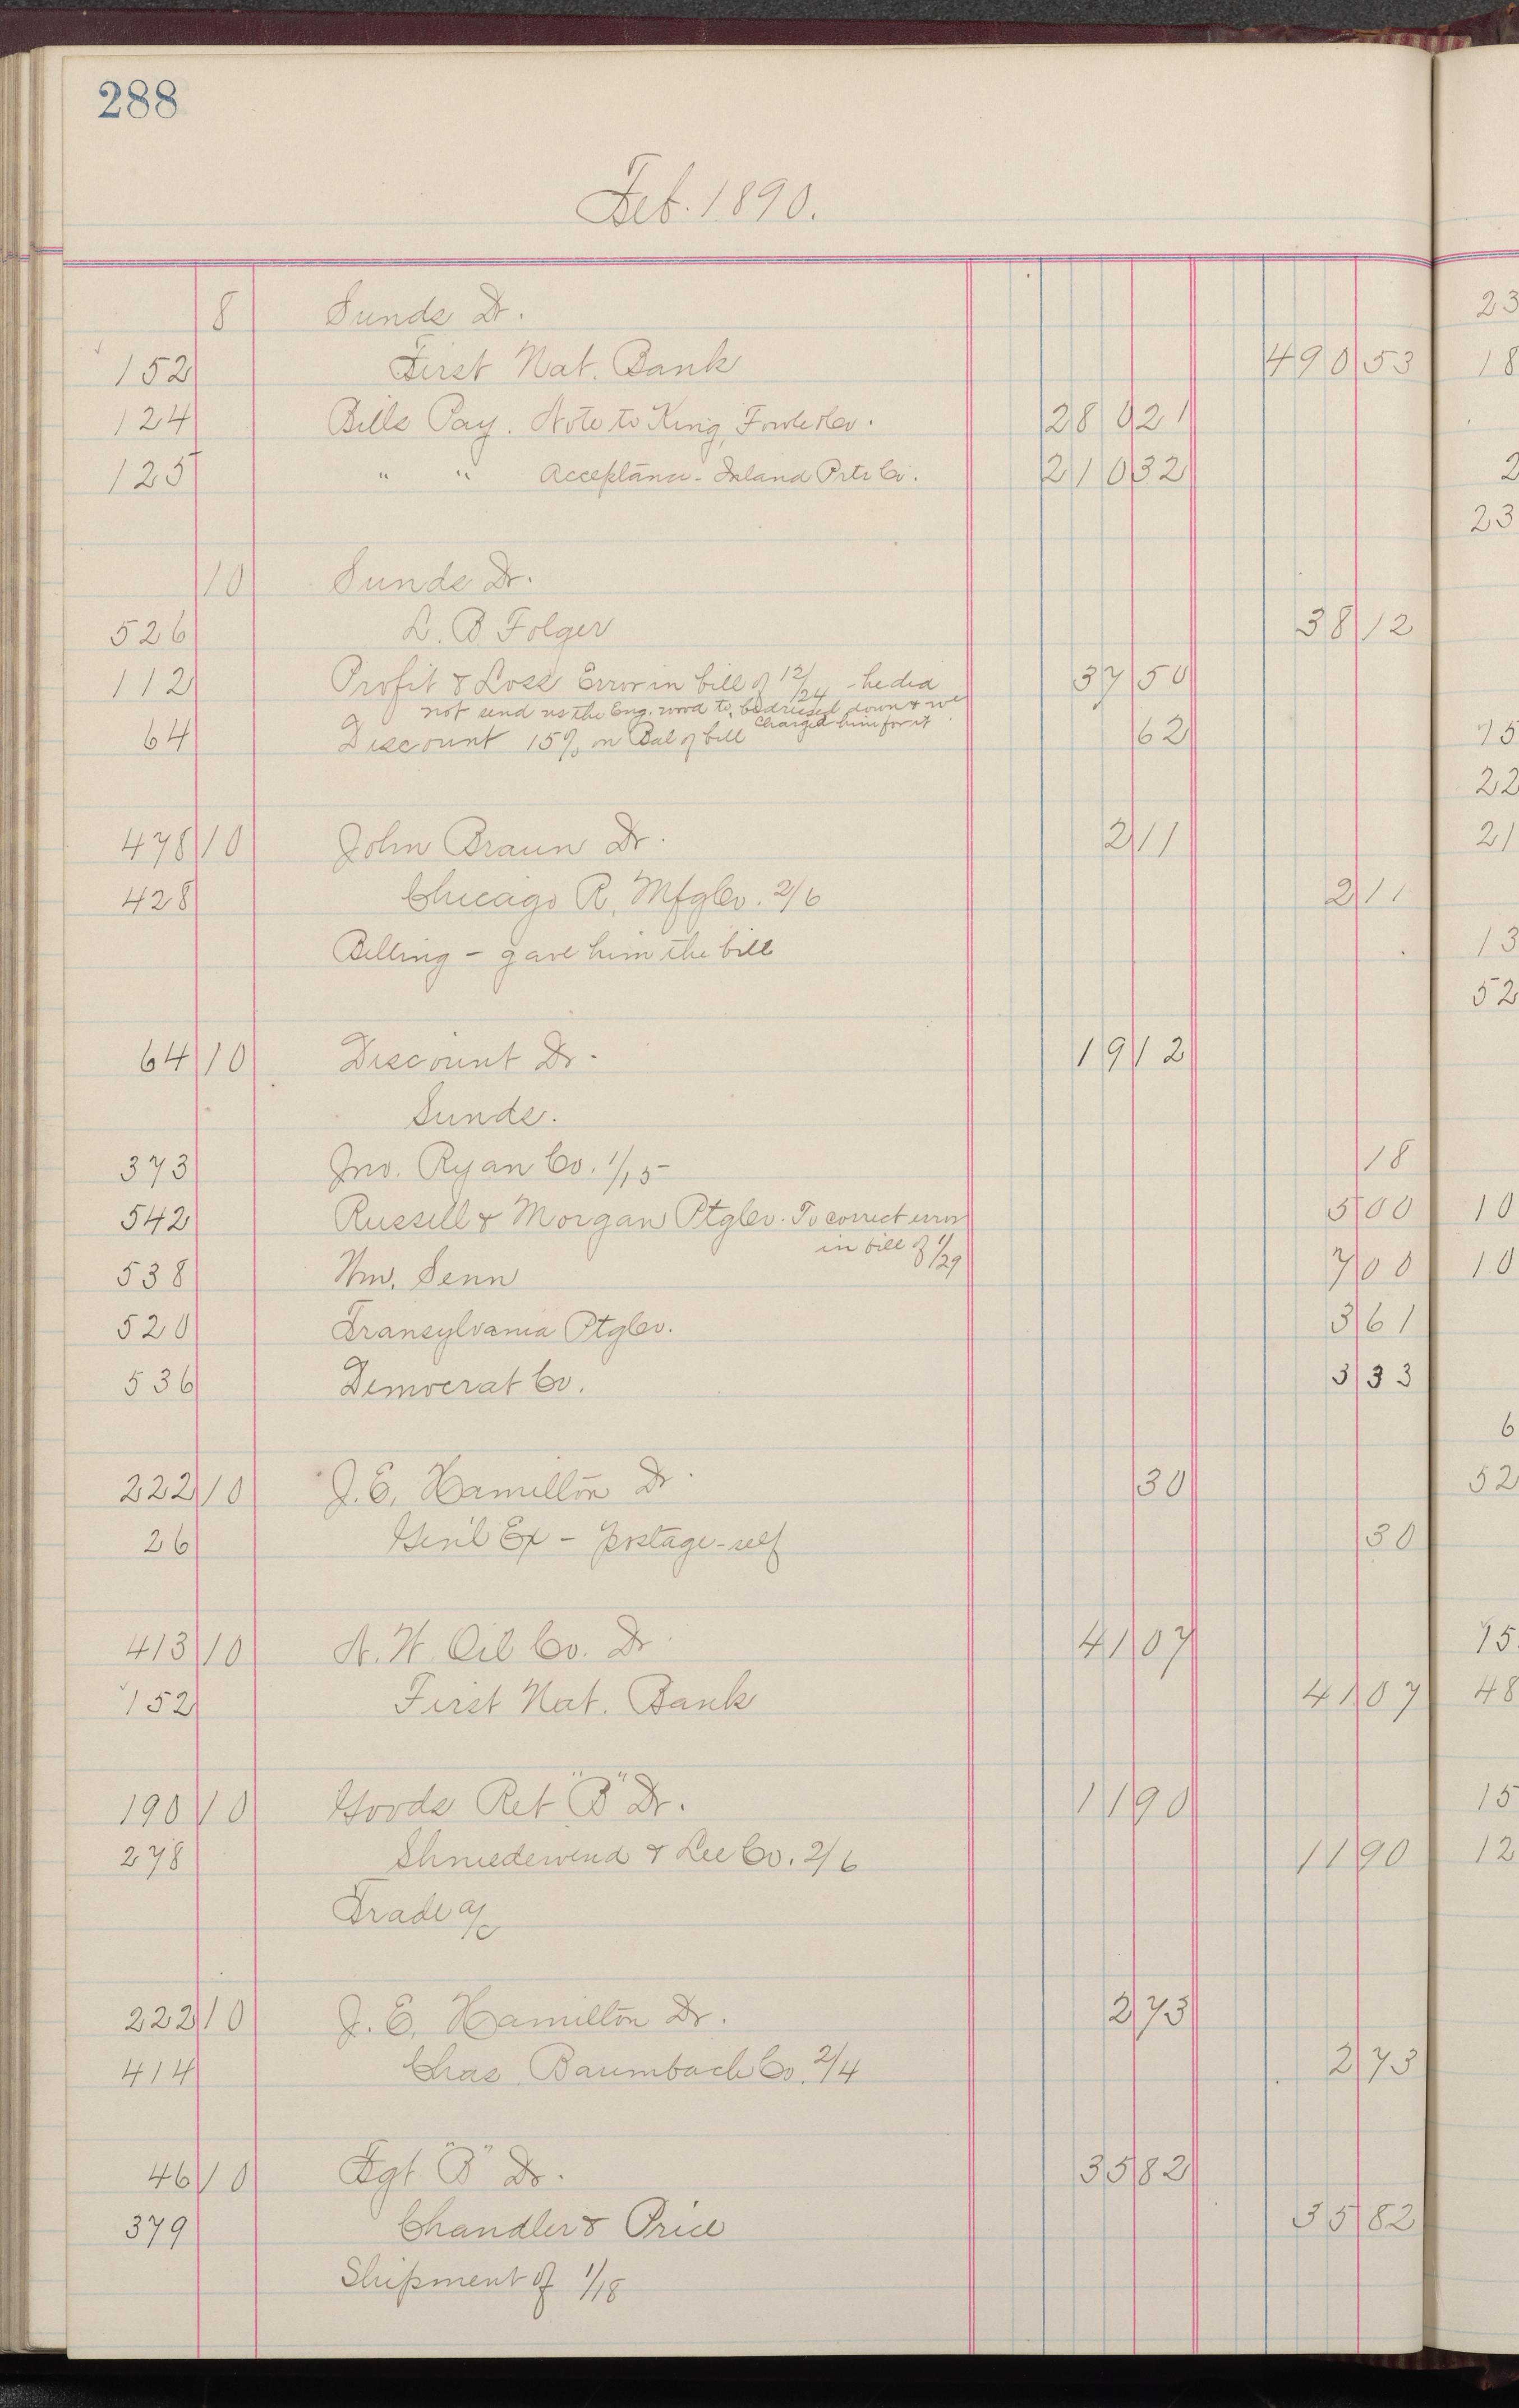 288
Feb. 1890.
8 Sunds Dr.
152 First Nat. Bank 490 53
124 Bills Pay. Note to King, Fowle & Co. 280 21
125 " " Acceptance - Inland Prtr Co. 210 32
10 Sunds Dr.
526 L. B Folger 38 12
112 Profit & Loss Error in bill of 12/24 - he did 37 50
not send us the Eng. wood to be dressed down & we
charged him for it
64 Discount 15% on Bal of bill 62
478 10 John Braun Dr. 2 11
428 Chicago R. Mfg Co. 2/6 2 11
Belting - gave him the bill
64 10 Discount Dr. 19 12
Sunds.
373 Jno. Ryan Co. 1/15 18
542 Russell & Morgan Ptg Co. To correct error 5 00
in bill of 1/29
538 Wm. Senn 7 00
520 Transylvania Ptg Co. 3 61
536 Democrat Co. 3 33
222 10 J. E. Hamilton Dr. 30
26 Gen'l Ex - postage - self 30
413 10 N. W. Oil Co. Dr. 41 07
152 First Nat. Bank 41 07
190 10 Goods Ret "B" Dr. 11 90
278 Shniedewend & Lee Co. 2/6 11 90
Trade a/c
222 10 J. E. Hamilton Dr. 2 73
414 Chas. Baumbach Co. 2/4 2 73
46 10 Fgt "B" Dr. 35 82
379 Chandler & Price 35 82
Shipment of 1/18